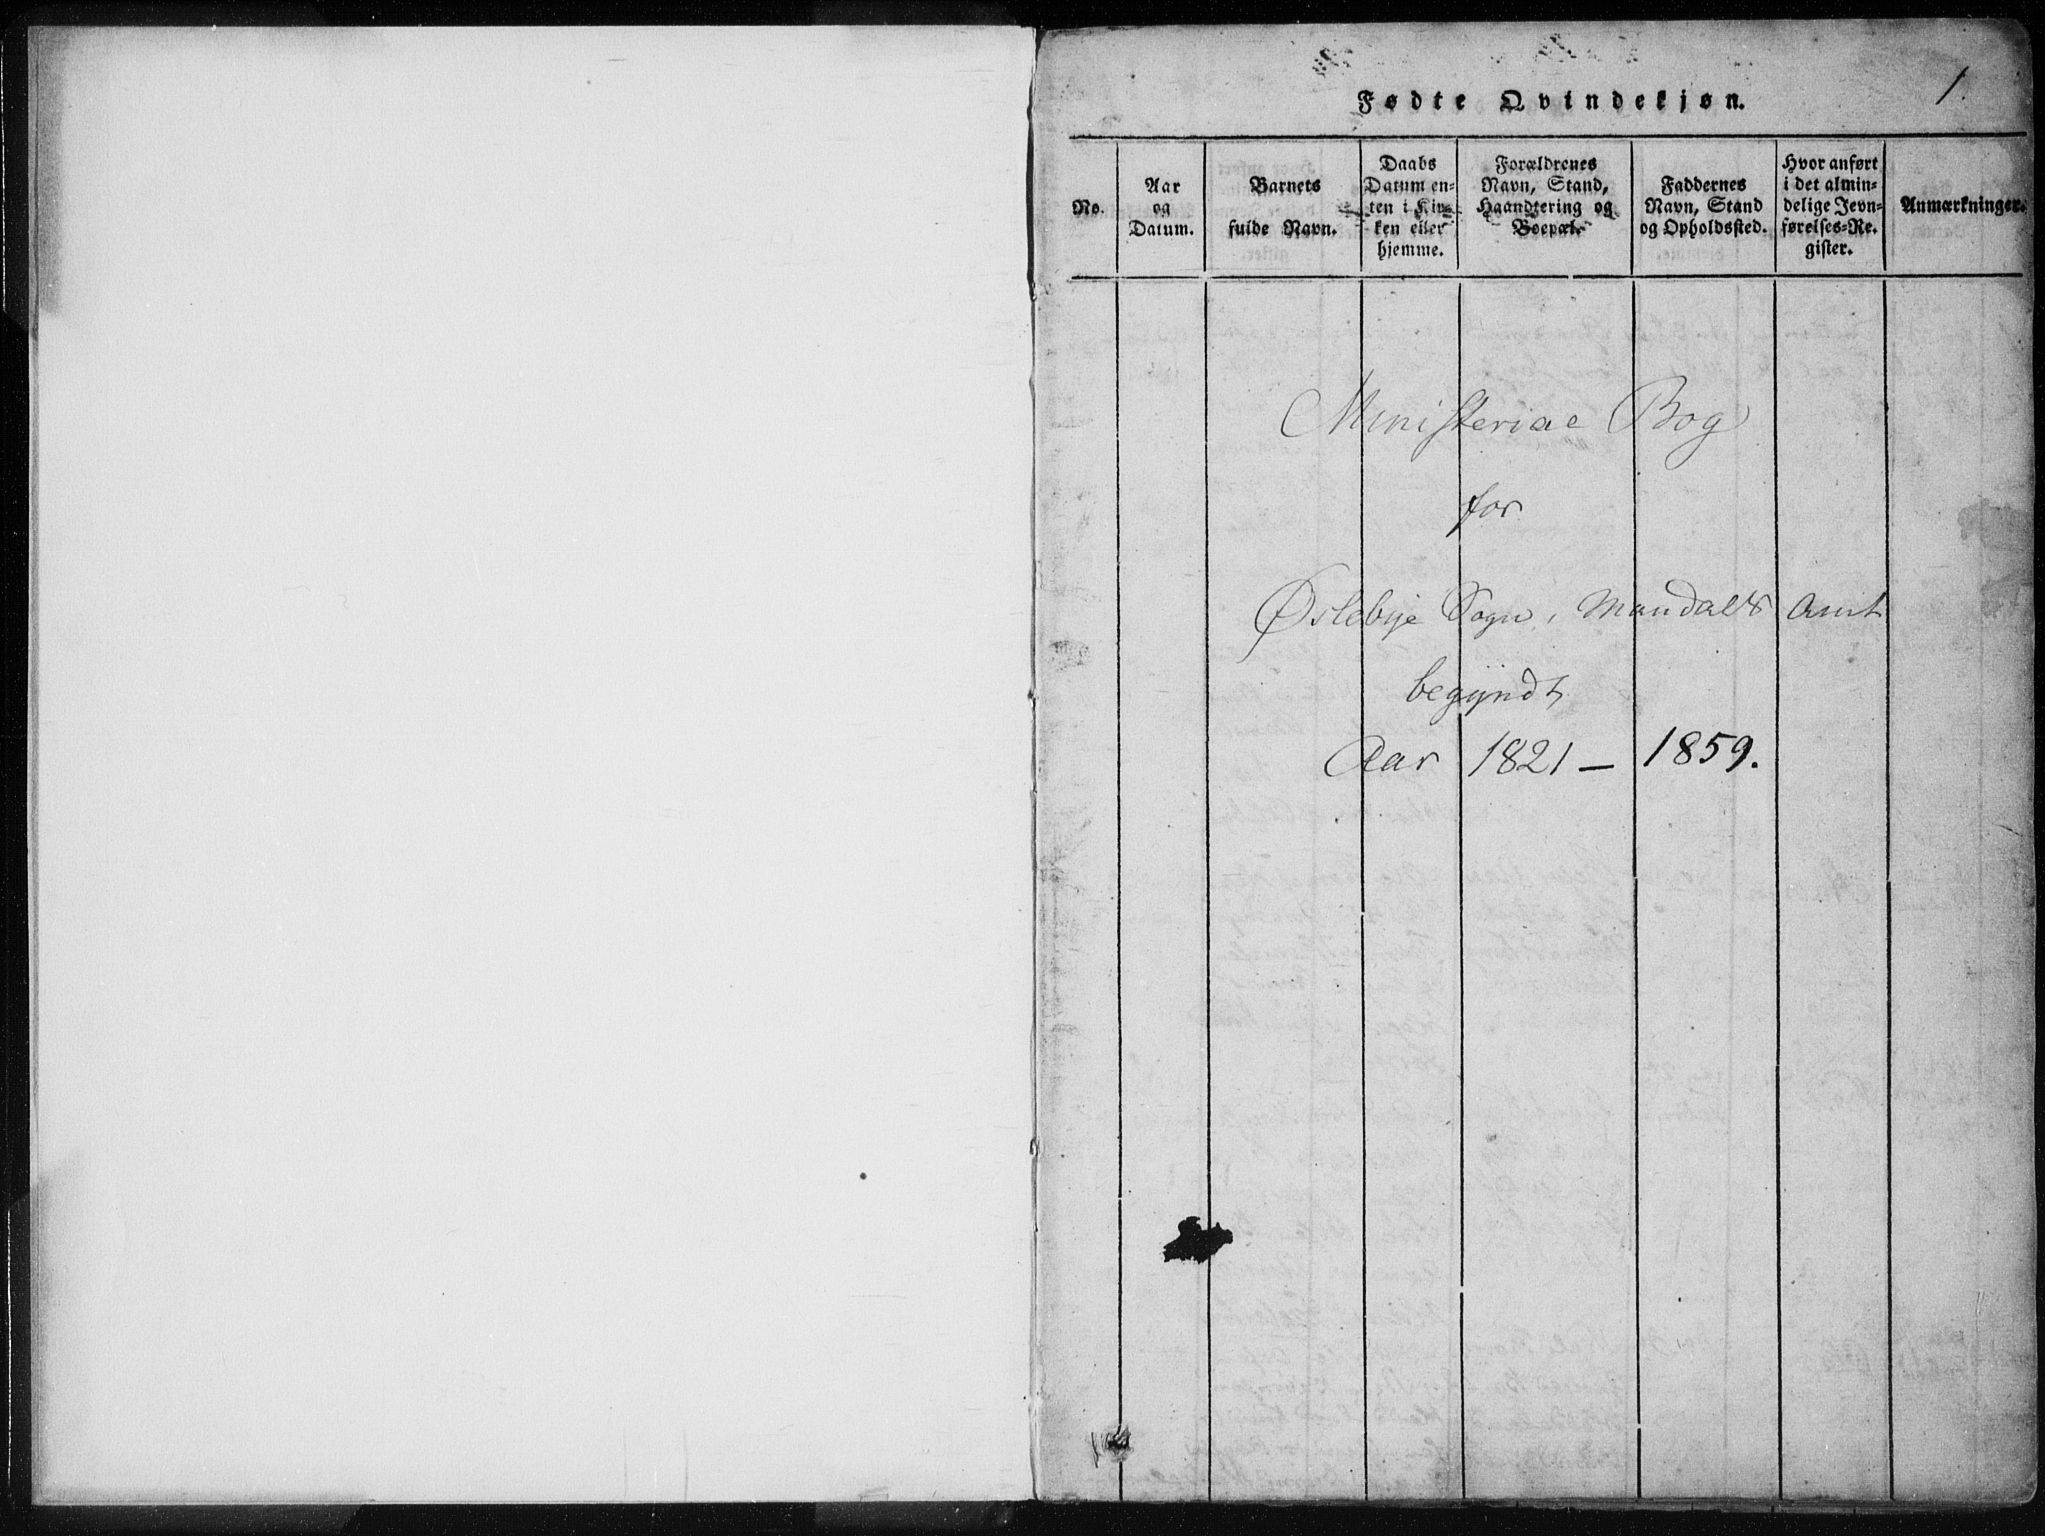 1.
Fødte Qvindekjøn.
No.
Aar
og
Datum.
Barnets
fulde Navn.
Daabs
Datum en-
ten i Kir-
ken eller
hjemme.
Forældrenes
Navn, Stand,
Haandtering og
Boepæl.
Faddernes
Navn, Stand
og Opholdssted.
Hvor anført
i det almin-
delige Jevn-
førelses-Re-
gister.
Anmærkninger.
Ministerial Bog
for
Øslebye Sogn, Mandals Amt
begyndt
Aar 1821 — 1859.